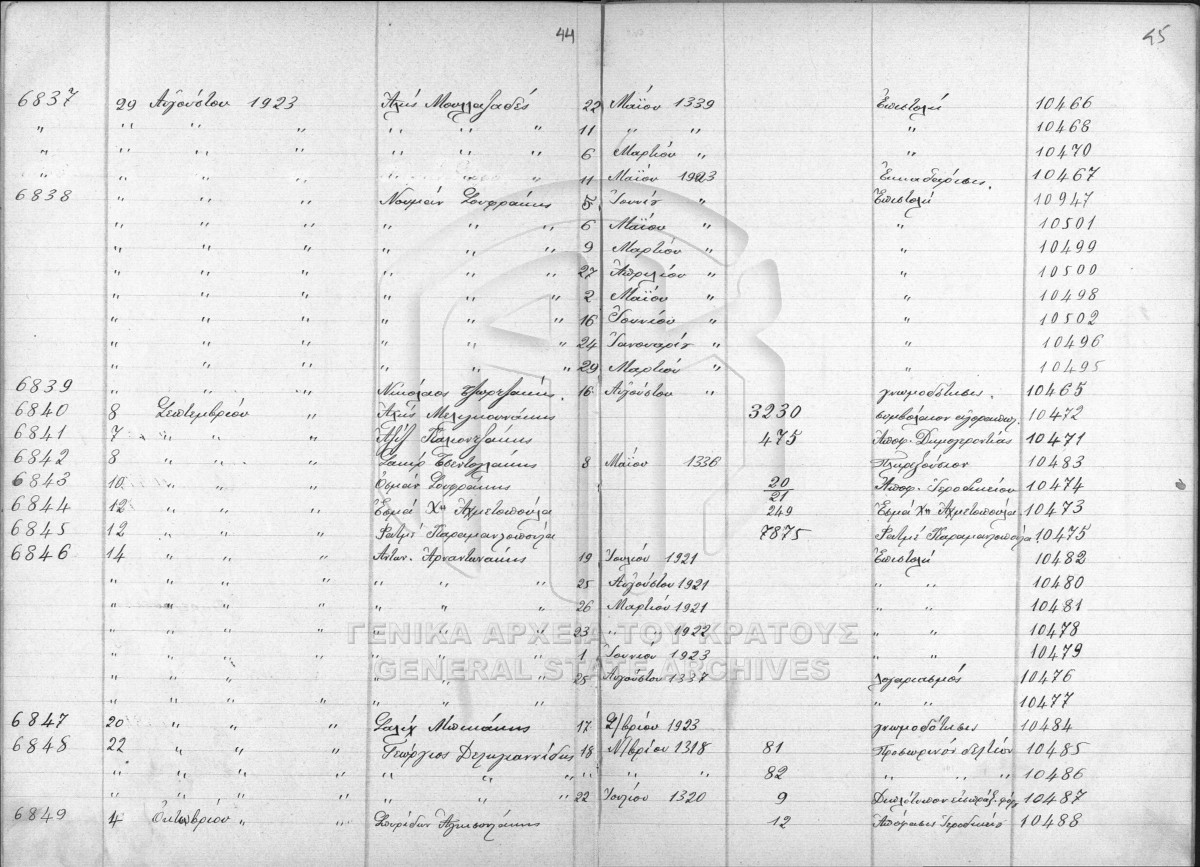 44 45
6837 29 Αὐγούστου 1923 Ἀλῆς Μουλλαζαδές 22 Μαΐου 1339 Ἐπιστολή 10466
〃 〃 〃 〃 〃 〃 〃 11 〃 〃 〃 10468
〃 〃 〃 〃 〃 〃 〃 6 Μαρτίου 〃 〃 10470
〃 〃 〃 〃 〃 〃 〃 11 Μαΐου 1923 10467
6838 〃 〃 〃 Νουμάν Σουφράκης 5 〃 Ἐπιστολή 10947
〃 〃 〃 〃 〃 〃 6 Μαΐου 〃 〃 10501
〃 〃 〃 〃 〃 〃 9 Μαρτίου 〃 〃 10499
〃 〃 〃 〃 〃 〃 27 Ἀπριλίου 〃 〃 10500
〃 〃 〃 〃 〃 〃 2 Μαΐου 〃 〃 10498
〃 〃 〃 〃 〃 〃 16 Ἰουνίου 〃 〃 10502
〃 〃 〃 〃 〃 〃 24 〃 〃 10496
〃 〃 〃 〃 〃 〃 29 Μαρτίου 〃 〃 10495
6839 〃 〃 〃 Νικόλαος 16 Αὐγούστου 〃 γνωμοδότησις 10465
6840 8 Σεπτεμβρίου 〃 Ἀλῆς 3230 συμβόλαιον 10472
6841 7 〃 〃 〃 475 Ἀποφ. Δημογεροντίας 10471
6842 8 〃 〃 〃 8 Μαΐου 1336 Πληρεξούσιον 10483
6843 10 〃 〃 〃 Ὀσμάν Σουφράκης 20/21 Ἀποφ. Ἱεροδικείου 10474
6844 12 〃 〃 〃 Ἐσμά Χʺ Ἀχμετοπούλα 249 Ἐσμά Χʺ Ἀχμετοπούλα 10473
6845 12 〃 〃 〃 Φατμέ Καραμανλοπούλα 7875 Φατμέ Καραμανλοπούλα 10475
6846 14 〃 〃 〃 Ἀντων. 19 Ἰουλίου 1921 Ἐπιστολή 10482
〃 〃 〃 〃 〃 〃 〃 25 Αὐγούστου 1921 〃 〃 10480
〃 〃 〃 〃 〃 〃 〃 26 Μαρτίου 1921 〃 〃 10481
〃 〃 〃 〃 〃 〃 〃 23 〃 1922 〃 〃 10478
〃 〃 〃 〃 〃 〃 〃 1 Ἰουνίου 1923 〃 〃 10479
〃 〃 〃 〃 〃 〃 〃 25 Αὐγούστου 1337 λογαριασμός 10476
〃 〃 〃 〃 〃 〃 〃 〃 〃 10477
6847 20 〃 〃 〃 Σαλήχ Μπεκάκης 17 9/βρίου 1923 γνωμοδότησις 10484
6848 22 〃 〃 〃 Γεώργιος Δεληγιαννίδης 18 Ν/βρίου 1318 81 Προσωρινόν δελτίον 10485
〃 〃 〃 〃 〃 〃 〃 〃 〃 〃 82 〃 〃 〃 10486
〃 〃 〃 〃 〃 〃 〃 22 Ἰουλίου 1320 9 Διπλότυπον 10487
6849 4 Ὀκτωβρίου 〃 〃 Σπυρίδων 12 Ἀπόφασις 10488
ΓΕΝΙΚΑ ΑΡΧΕΙΑ ΤΟΥ ΚΡΑΤΟΥΣ
GENERAL STATE ARCHIVES